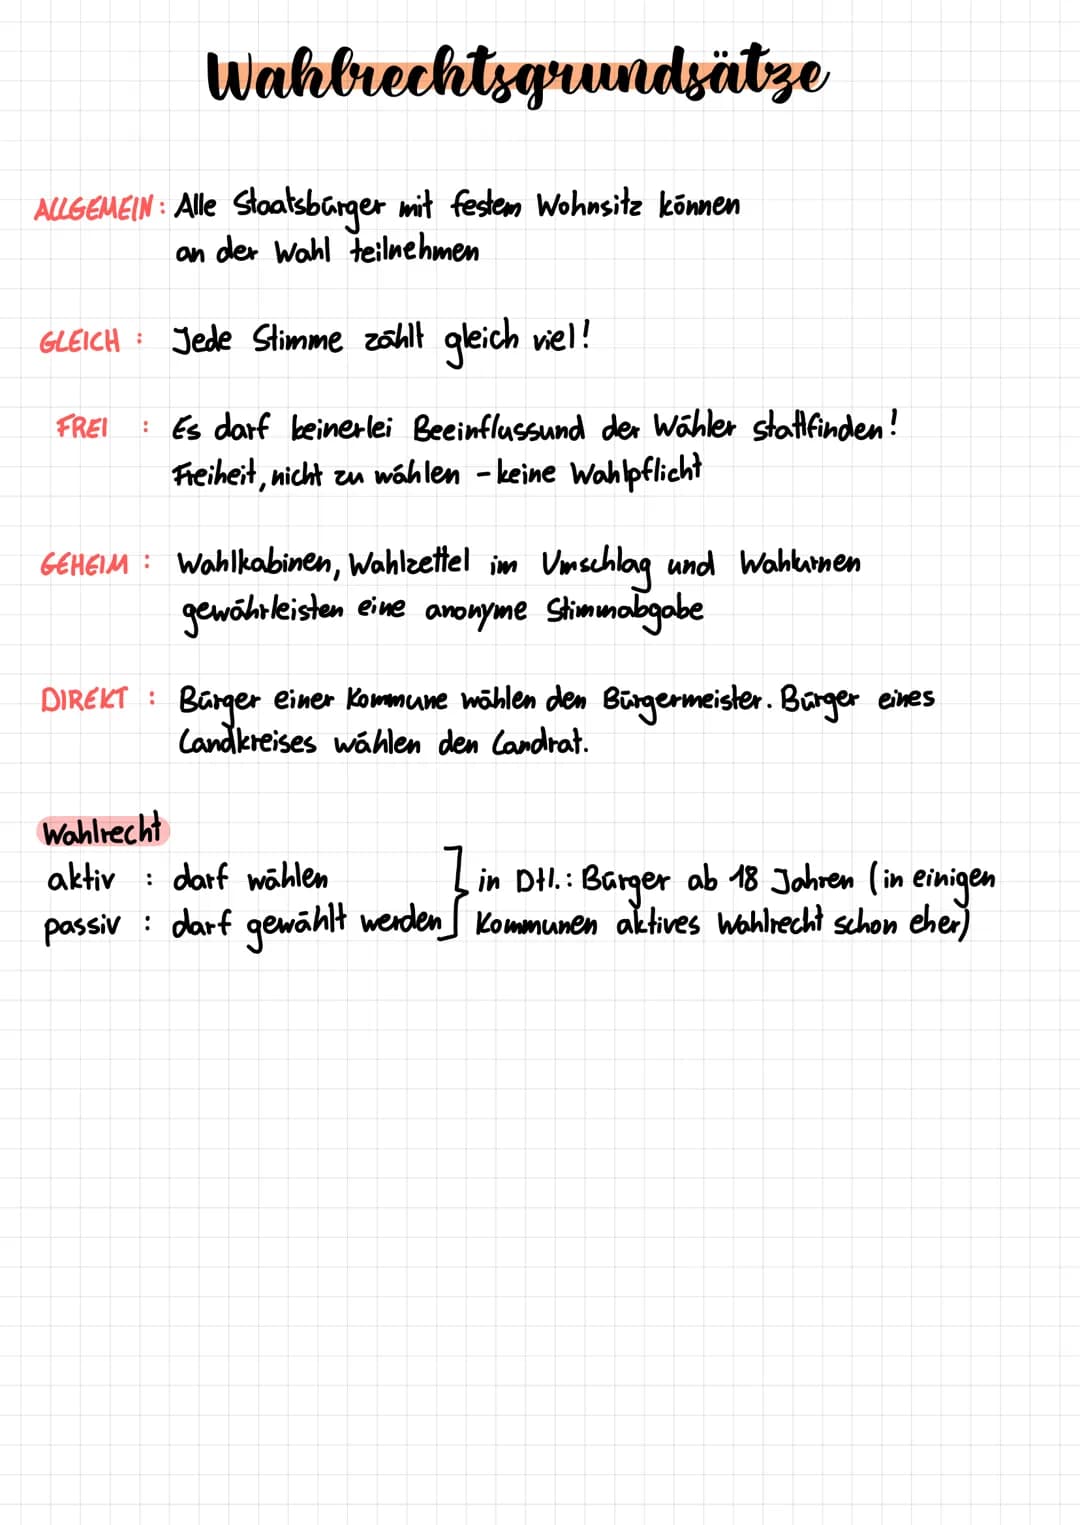 Wahlrechtsgrundsätze
ALLGEMEIN: Alle Staatsbürger mit festem Wohnsitz können
an der Wahl teilnehmen
GLEICH : Jede Stimme zählt gleich viel!
FREI : Es darf keinerlei Beeinflussund der Wähler stattfinden!
Freiheit, nicht zu wählen - keine Wahlpflicht
GEHEIM : Wahlkabinen, Wahlzettel im Umschlag und Wahlurnen
gewährleisten eine anonyme Stimmabgabe
DIREKT : Bürger einer Kommune wählen den Bürgermeister. Bürger eines
Landkreises wählen den Landrat.
Wahlrecht
aktiv : darf wählen } in Dtl.: Bürger ab 18 Jahren (in einigen
passiv : darf gewählt werden Kommunen aktives Wahlrecht schon eher)